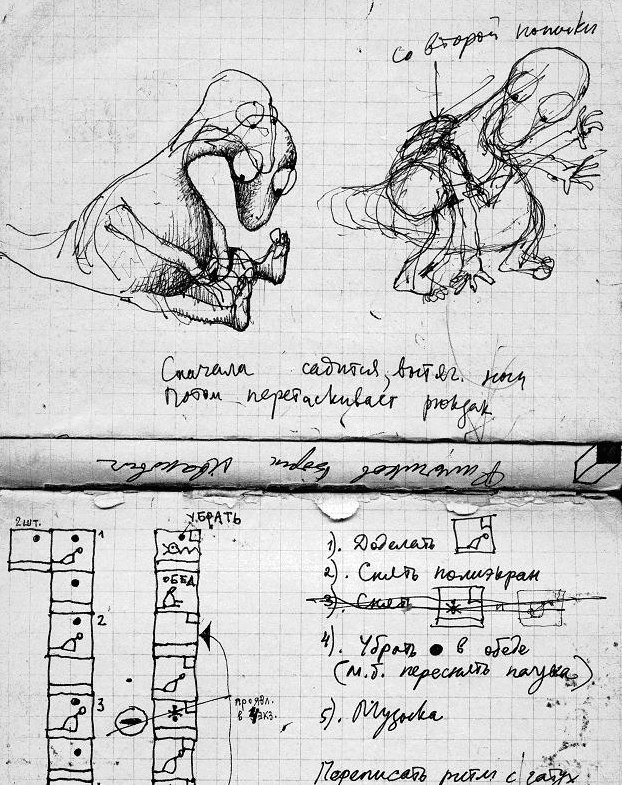 со второй попытки
Сначала садится, вытяг. ноги
Потом перетаскивает рюкзак
2 шт.
1
УБРАТЬ
ОБЕД
2
3
проявл.
в экз.
1). Доделать
2). Снять полиэкран
3). Снять и
4). Убрать в обеде
(м.б. переснять паузка)
5). Музыка
Переписать ритм с